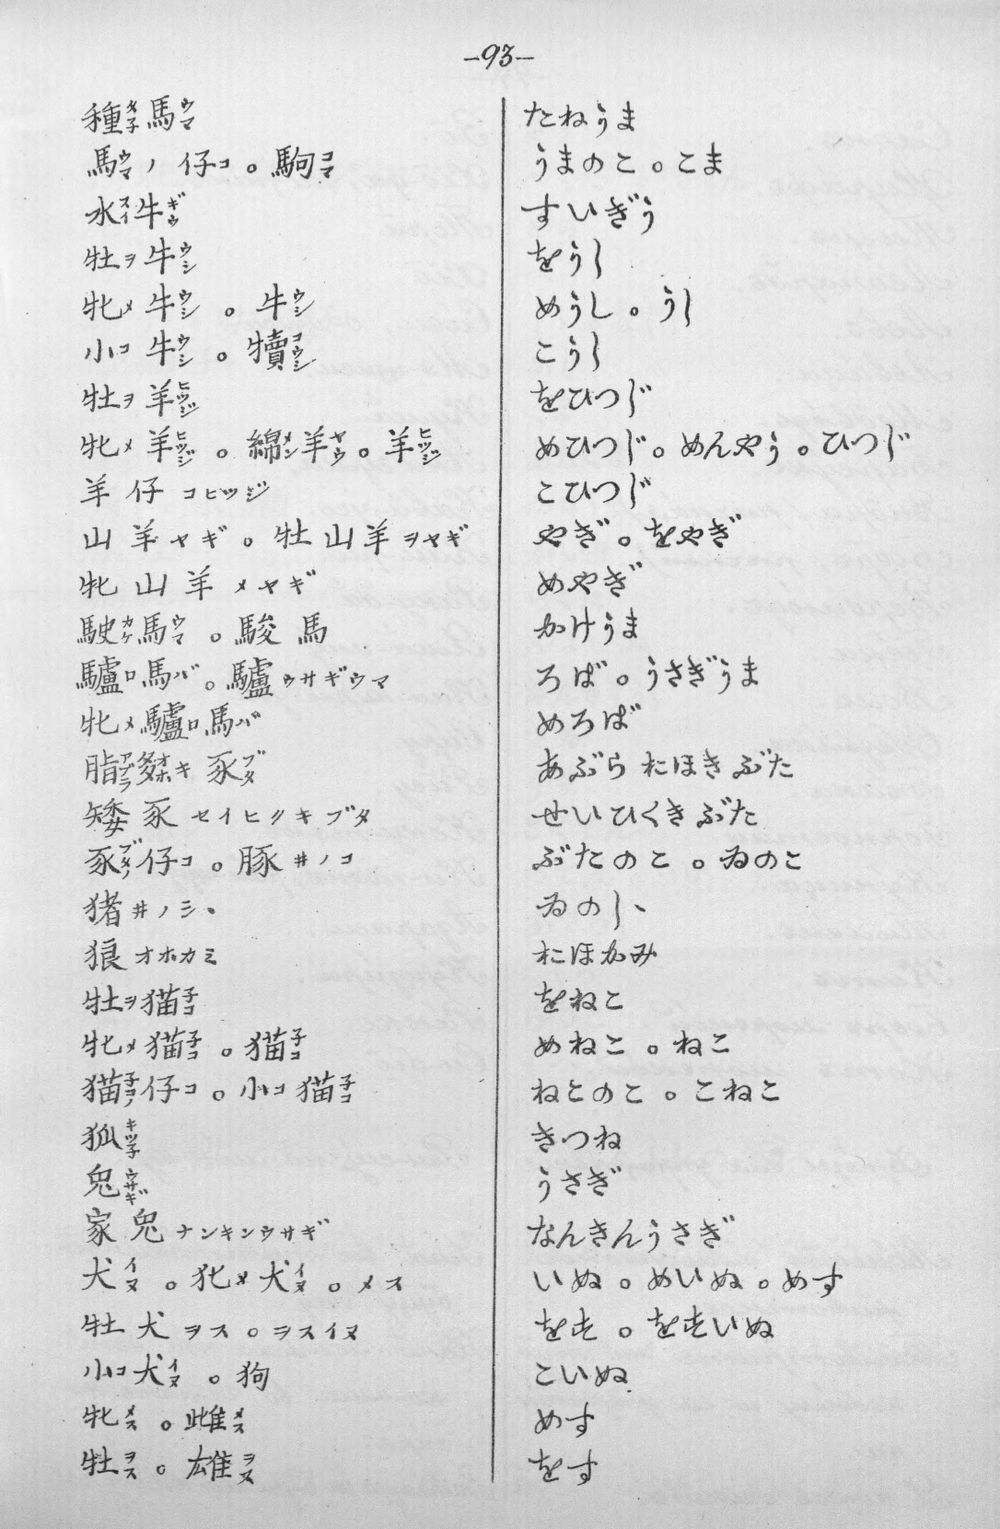 -93-
種タ子馬ウマ たねうま
馬ウマノ仔コ。駒コマ うまのこ。こま
水スイ牛ギウ すいぎう
牡ヲ牛ウシ をうし
牝メ牛ウシ。牛ウシ めうし。うし
小コ牛ウシ。犢コウシ こうし
牡ヲ羊ヒツジ をひつじ
牝メ羊ヒツジ。綿メン羊ヤウ。羊ヒツジ めひつじ。めんやう。ひつじ
羊仔コヒツジ こひつじ
山羊ヤギ。牡山羊ヲヤギ やぎ。をやぎ
牝山羊メヤギ めやぎ
駛カケ馬ウマ。駿馬 かけうま
驢ロ馬バ。驢ウサギウマ ろば。うさぎうま
牝メ驢ロ馬バ めろば
脂アブラ オホキ豕ブタ あぶらおほきぶた
矮豕セイヒクキブタ せいひくきぶた
豕ブタノ仔コ。豚井ノコ ぶたのこ。ゐのこ
猪井ノシヽ ゐのしヽ
狼オホカミ おほかみ
牡ヲ猫子コ をねこ
牝メ猫子コ。猫子コ めねこ。ねこ
猫子コノ仔コ。小コ猫子コ ねこのこ。こねこ
狐キツ子 きつね
兎ウサギ うさぎ
家兎ナンキンウサギ なんきんうさぎ
犬イヌ。牝メ犬イヌ。メス いぬ。めいぬ。めす
牡犬ヲス。ヲスイヌ をす。をすいぬ
小コ犬イヌ。狗 こいぬ
牝メス。雌メス めす
牡ヲス。雄ヲス をす